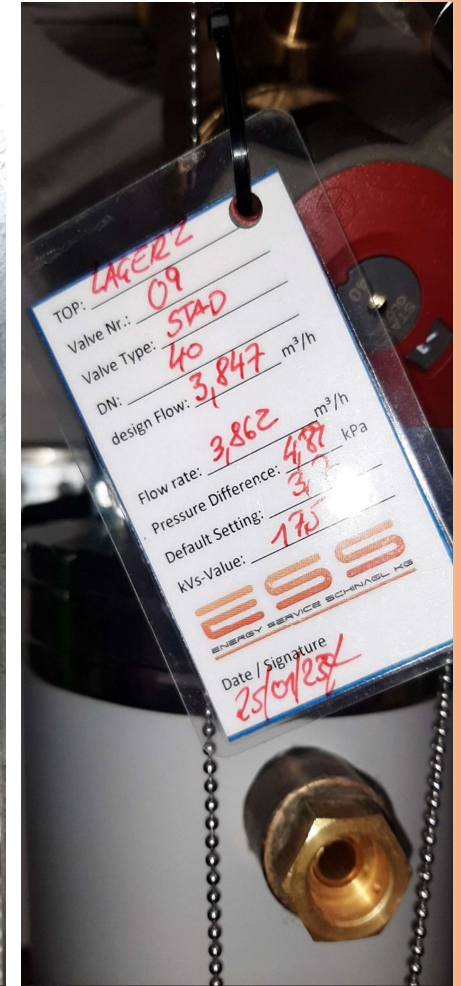 TOP: LAGER 2
Valve Nr.: 09
Valve Type: STAD
DN: 40
design Flow: 3,847 m³/h
Flow rate: 3,862 m³/h
Pressure Difference: 4,87 kPa
Default Setting:
kVs-Value: 17,5
ESS
ENERGY SERVICE SCHINAGL KG
Date / Signature
25/01/23